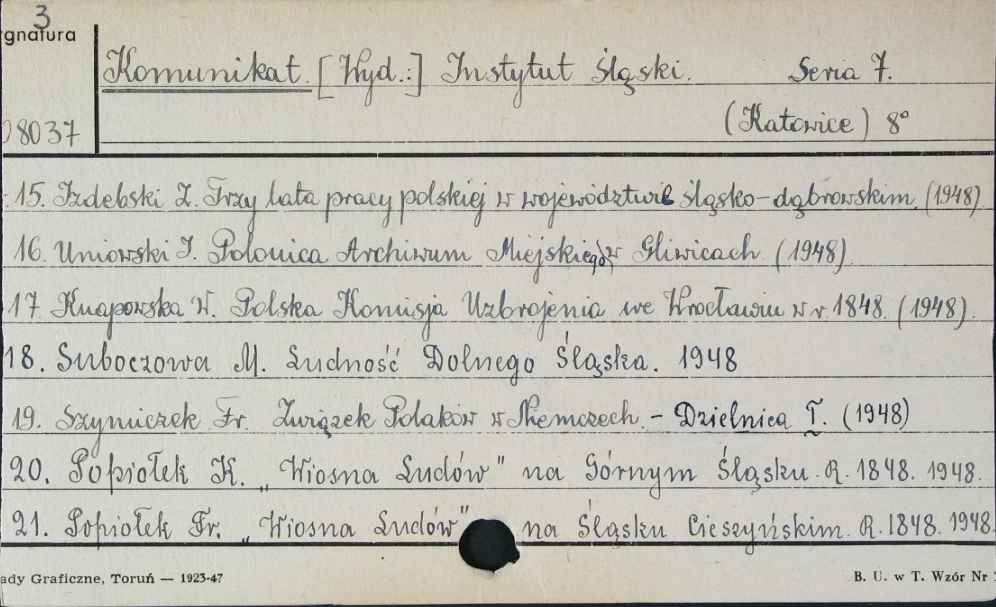 3
gnatura
Komunikat. [Wyd.:] Instytut Śląski. Seria 7.
8037 (Katowice) 8°
15. Izdebski Z. Trzy lata pracy polskiej w województwie śląsko-dąbrowskim. (1948)
16. Uniowski J. Polonica Archiwum Miejskiego w Gliwicach. (1948)
17. Knapowska W. Polska Komisja Uzbrojenia we Wrocławiu w r. 1848. (1948).
18. Suboczowa M. Ludność Dolnego Śląska. 1948
19. Szyniczek Fr. Związek Polaków w Niemczech. - Dzielnica I. (1948)
20. Popiołek K. „Wiosna Ludów" na Górnym Śląsku. R. 1848. 1948.
21. Popiołek Fr. „Wiosna Ludów" na Śląsku Cieszyńskim. R. 1848. 1948.
ady Graficzne, Toruń — 1923-47 B. U. w T. Wzór Nr